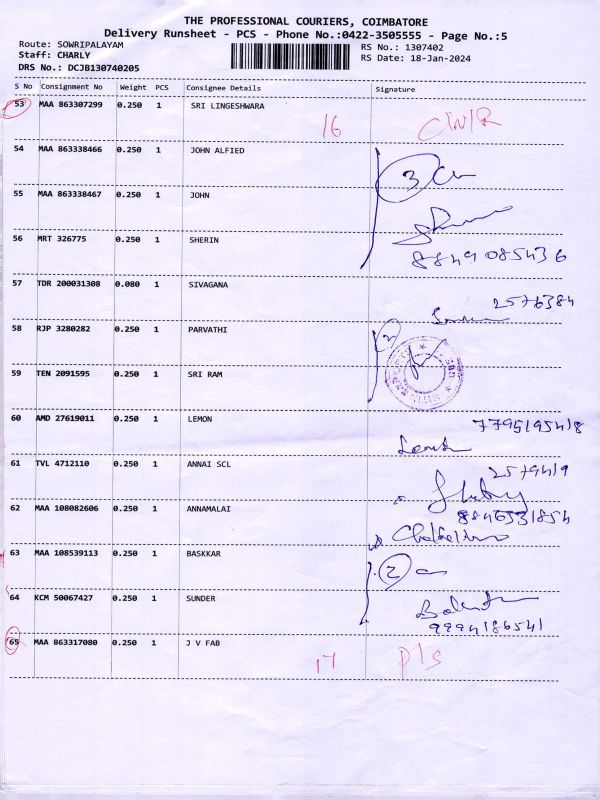 THE PROFESSIONAL COURIERS, COIMBATORE
Delivery Runsheet - PCS - Phone No.:0422-3505555 - Page No.:5
Route: SOWRIPALAYAM RS No.: 1307402
Staff: CHARLY RS Date: 18-Jan-2024
DRS No.: DCJB130740205
S No Consignment No Weight PCS Consignee Details Signature
53 MAA 863307299 0.250 1 SRI LINGESHWARA
16
54 MAA 863338466 0.250 1 JOHN ALFIED
3
55 MAA 863338467 0.250 1 JOHN
56 MRT 326775 0.250 1 SHERIN
8849085436
57 TDR 200031308 0.080 1 SIVAGANA
2576384
58 RJP 3280282 0.250 1 PARVATHI
2
59 TEN 2091595 0.250 1 SRI RAM
60 AMD 27619011 0.250 1 LEMON
7795195418
61 TVL 4712110 0.250 1 ANNAI SCL
2579419
62 MAA 108082606 0.250 1 ANNAMALAI
8846531854
63 MAA 108539113 0.250 1 BASKKAR
2
64 KCM 50067427 0.250 1 SUNDER
9994186541
65 MAA 863317080 0.250 1 J V FAB
17 P/s